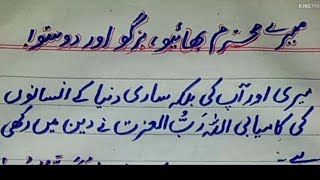 KINEMASTER
میرے محترم بھائیو، بزرگو اور دوستو!
میری اور آپ کی بلکہ ساری دنیا کے انسانوں
کی کامیابی اللہ رَبُّ العزت نے دین میں رکھی
ہے۔